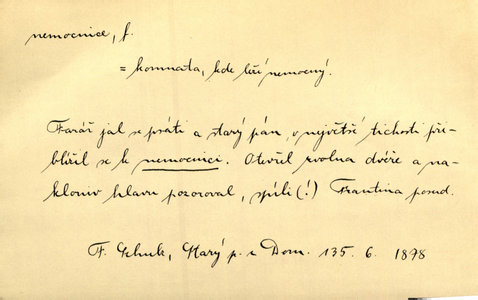 nemocnice, f.
= komnata, kde leží nemocný.
Farář jal se psáti a starý pán, v největší tichosti při-
blížil se k nemocnici. Otevřel zvolna dvéře a na-
kloniv hlavu pozoroval, spíli (!) Frantina posud.
F. Schulz, Starý p. z Dom. 135. 6. 1878